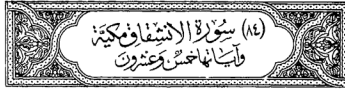 (٨٤) سُورَة الانشقاق مكيَّة
وَآيَاتهَا خَمسٌ وَعِشْرُونَ